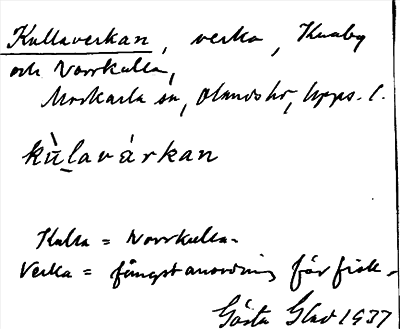 Kullaverkan, verka, Knaby
och Norrkulla,
Morkarla sn, Olands hd, Upps. l.
kùlavárkan
Kulla = Norrkulla.
Verka = fångstanordning för fisk.
Gösta Glad 1937